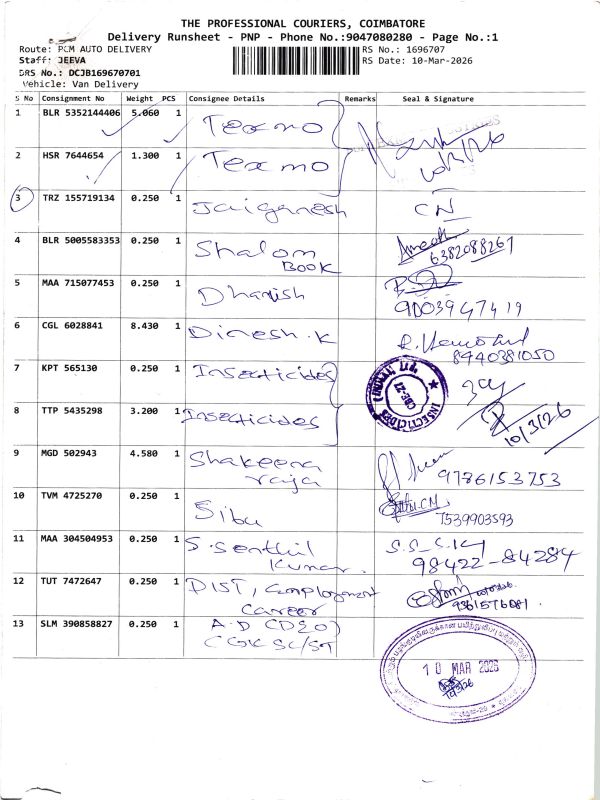 THE PROFESSIONAL COURIERS, COIMBATORE
Delivery Runsheet - PNP - Phone No.:9047080280 - Page No.:1
Route: PCM AUTO DELIVERY
RS No.: 1696707
Staff: JEEVA
RS Date: 10-Mar-2026
DRS No.: DCJB169670701
Vehicle: Van Delivery
S No Consignment No Weight PCS Consignee Details Remarks Seal & Signature
1 BLR 5352144406 5.060 1 Texmo
2 HSR 7644654 1.300 1 Texmo
3 TRZ 155719134 0.250 1 Jaiganesh CN
4 BLR 5005583353 0.250 1 Shalom Book 6382088261
5 MAA 715077453 0.250 1 Dhanish 9003947419
6 CGL 6028841 8.430 1 Dinesh.K 8940381050
7 KPT 565130 0.250 1 Insecticides
INSECTICIDES (INDIA) Ltd.
8 TTP 5435298 3.200 1 Insecticides 10/3/26
9 MGD 502943 4.580 1 Shakeena raja 9786153753
10 TVM 4725270 0.250 1 Sibu 7539903593
11 MAA 304504953 0.250 1 S.Senthil Kumar 98422-84284
12 TUT 7472647 0.250 1 DIST, Employment Career 9361576081
13 SLM 390858827 0.250 1 A.D CGK SC/ST
10 MAR 2026